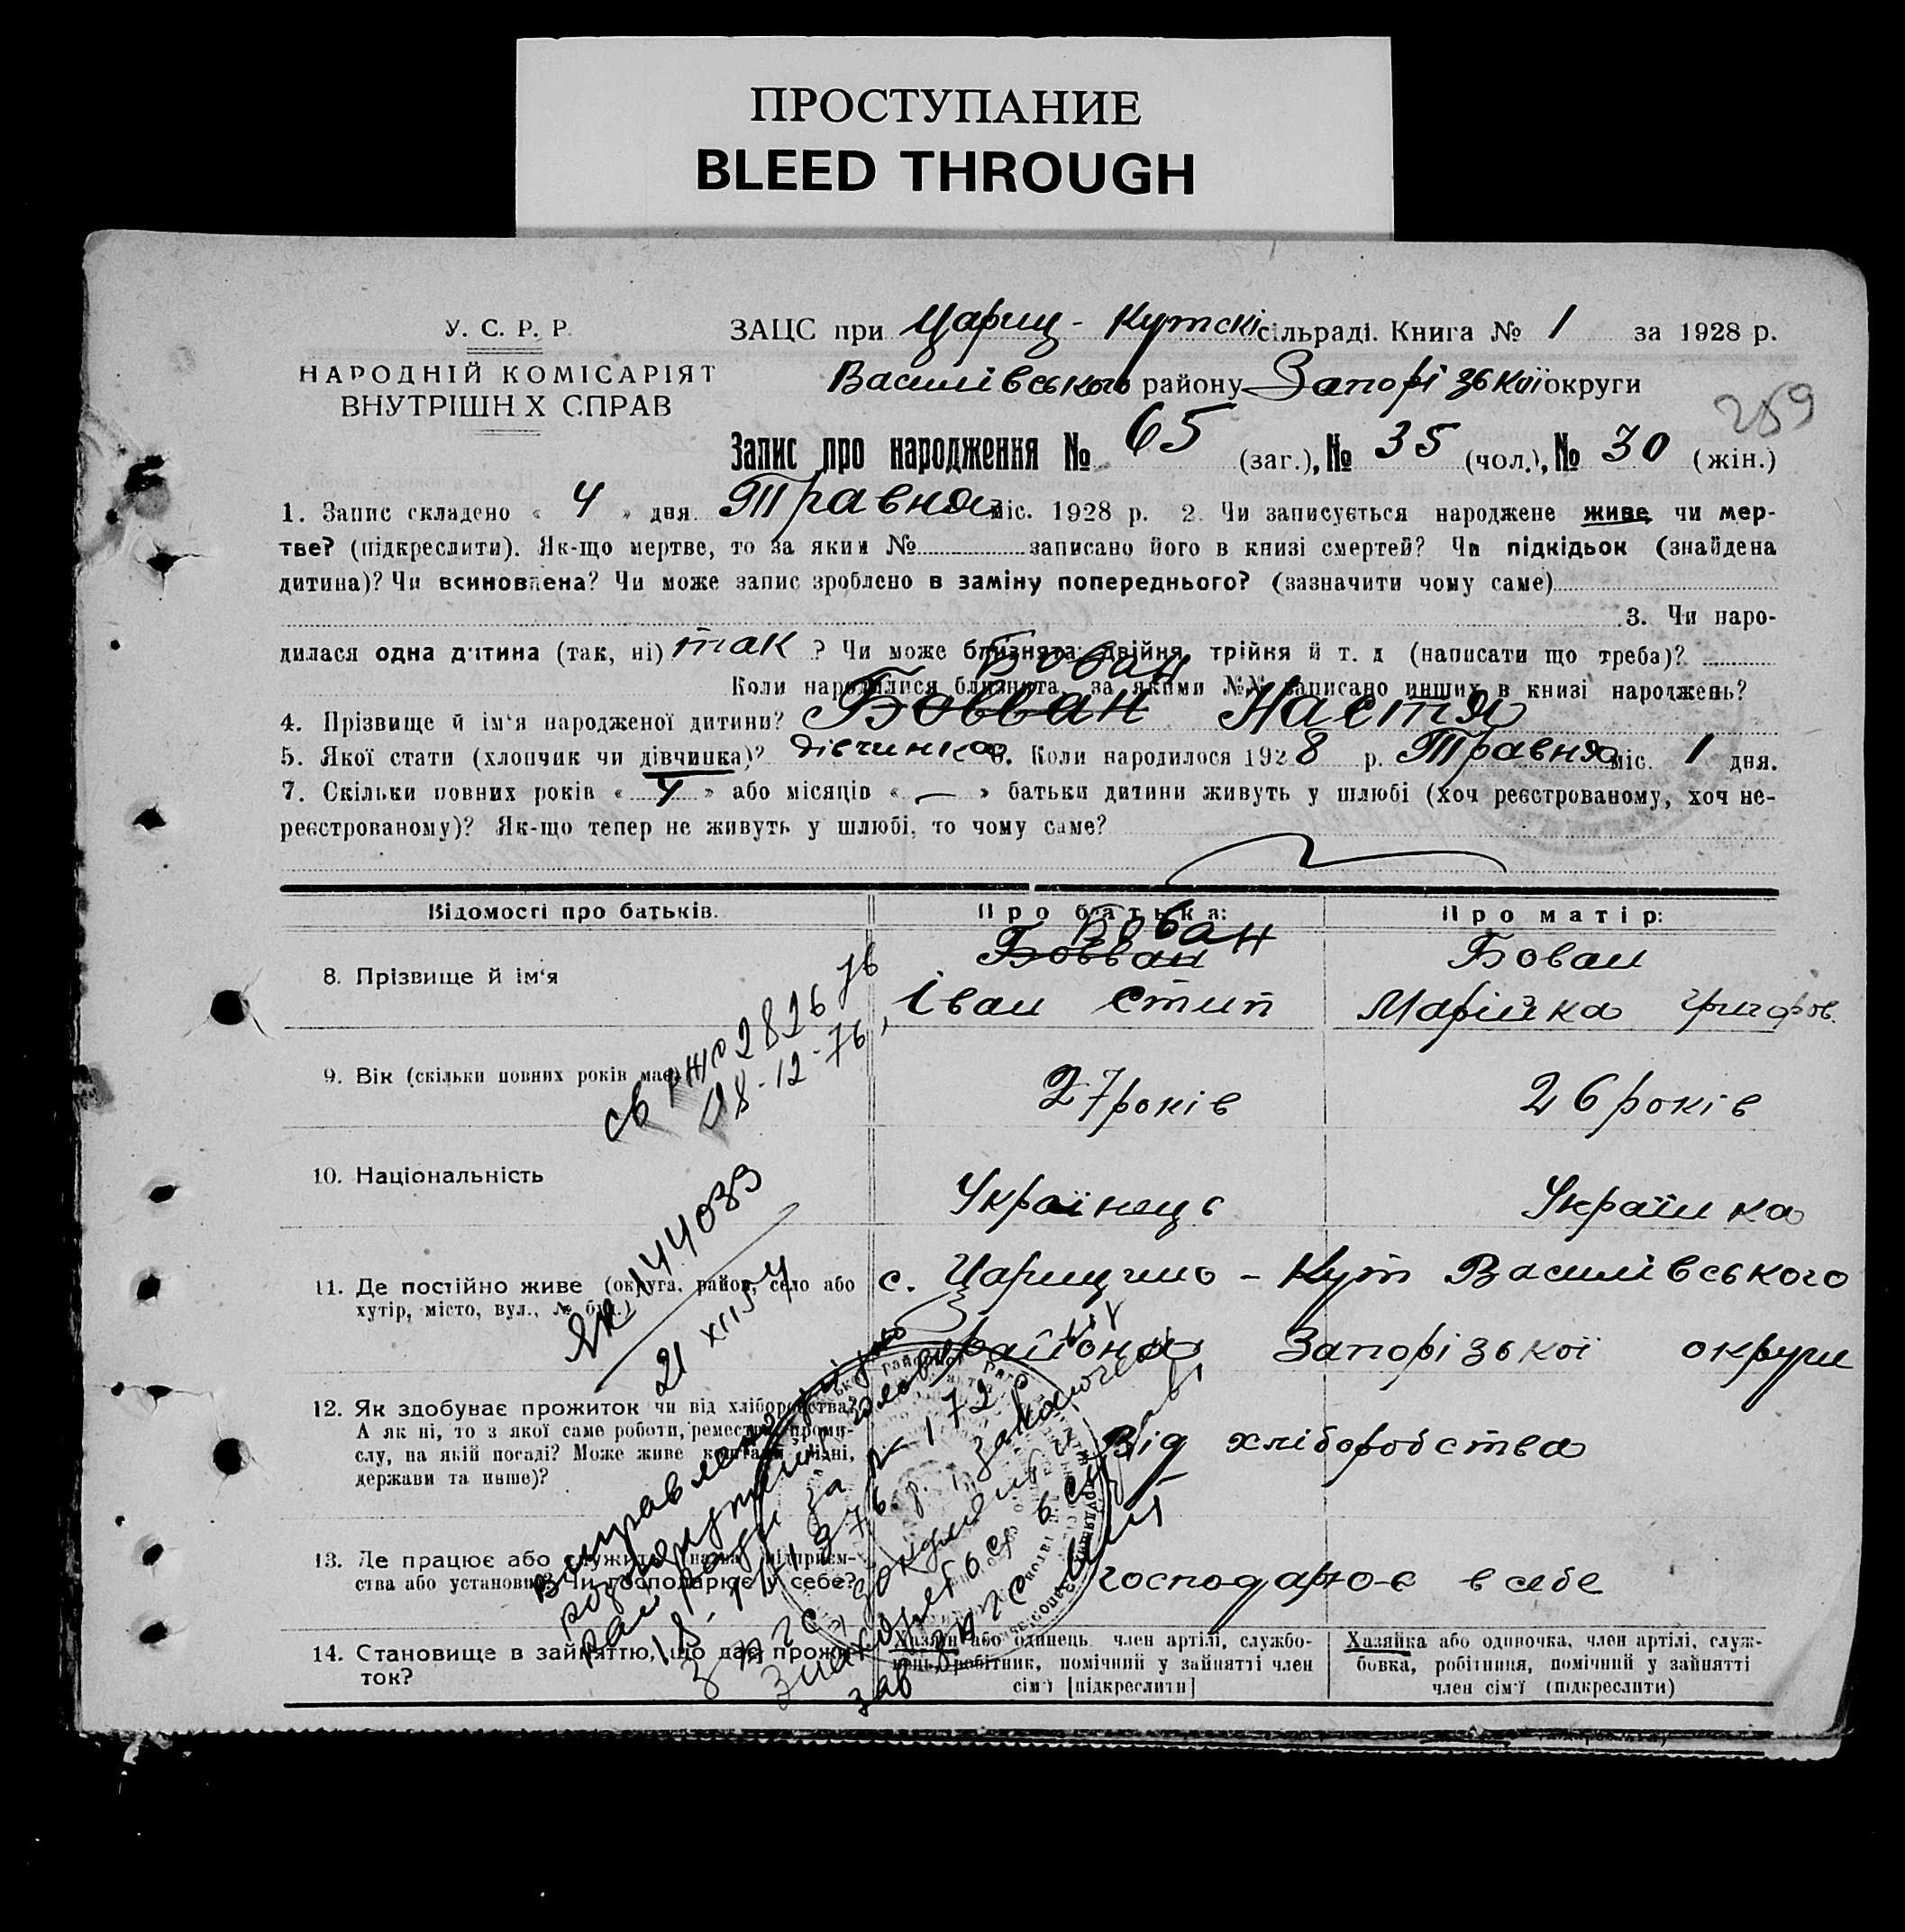 ПРОСТУПАНИЕ
BLEED THROUGH
У. С. Р. Р.
НАРОДНІЙ КОМІСАРІЯТ
ВНУТРІШН Х СПРАВ
ЗАЦС при Цариц-Кутскі сільраді. Книга № 1 за 1928 р.
Василівського району Запорізької округи
259
Запис про народження № 65 (заг.), № 35 (чол.), № 30 (жін.)
1. Запис складено « 4 » дня Травня міс. 1928 р. 2. Чи записується народжене живе чи мер-
тве? (підкреслити). Як-що мертве, то за яким № записано його в книзі смертей? Чи підкідьок (знайдена
дитина)? Чи всиновлена? Чи може запис зроблено в заміну попереднього? (зазначити чому саме)
3. Чи наро-
дилася одна дитина (так, ні) так ? Чи може близнята: двійня, трійня й т. д (написати що треба)?
Бован
Коли народилися близнята, за якими №№ записано инших в книзі народжень?
4. Прізвище й ім'я народженої дитини? Бовван Настя
5. Якої стати (хлопчик чи дівчинка)? дівчинка 6. Коли народилося 1928 р. Травня міс. 1 дня.
7. Скільки повних років « 4 » або місяців « — » батьки дитини живуть у шлюбі (хоч реєстрованому, хоч не-
реєстрованому)? Як-що тепер не живуть у шлюбі, то чому саме?
Відомості про батьків. Про батька: Про матір:
Бован
8. Прізвище й ім'я Бовван Бован
Іван Стип Марійка Григоров.
9. Вік (скільки повних років має) 27 років 26 років
10. Національність Українець Українка
11. Де постійно живе (округа, район, село або с. Царицино-Кут Василівського
хутір, місто, вул., № буд.) району Запорізької округи
12. Як здобуває прожиток чи від хліборобства? Від хліборобства
А як ні, то з якої саме роботи, ремества, проми-
слу, на якій посаді? Може живе коштами рідні,
держави та инше)?
13. Де працює або служить (назва підприєм- господарює в себе
ства або установи)? Чи господарює у себе?
14. Становище в зайняттю, що дає прожи-
ток?
Хазяїн або одинець член артілі, службо-
вець, робітник, помічний у зайнятті член
сім'ї [підкреслити]
Хазяйка або одиночка, член артілі, служ-
бовка, робітниця, помічний у зайнятті
член сім'ї (підкреслити)
2826
28-12-76
144033
21 XII 54